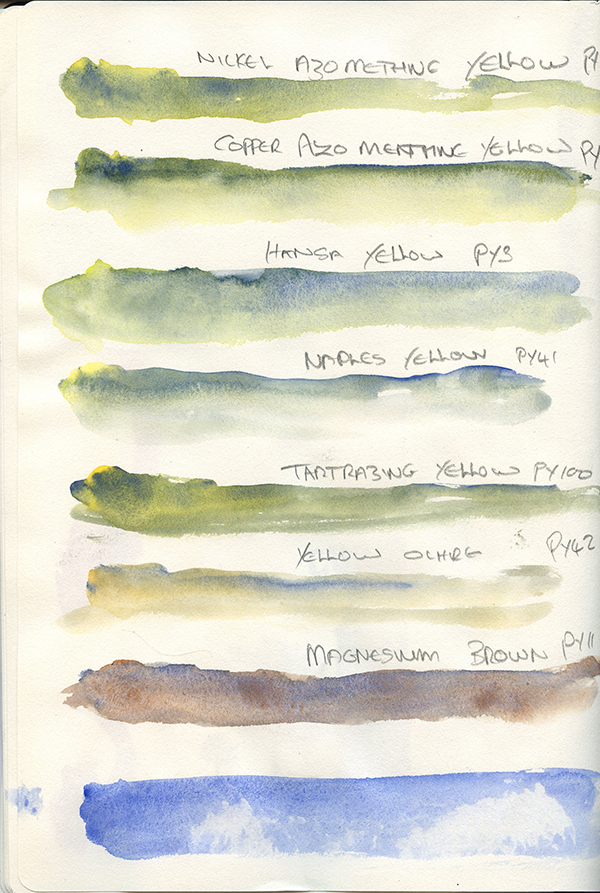 NICKEL AZOMETHINE YELLOW PY
COPPER AZO METHINE YELLOW PY
HANSA YELLOW PY3
NAPLES YELLOW PY41
TARTRAZINE YELLOW PY100
YELLOW OCHRE PY42
MAGNESIUM BROWN PY11